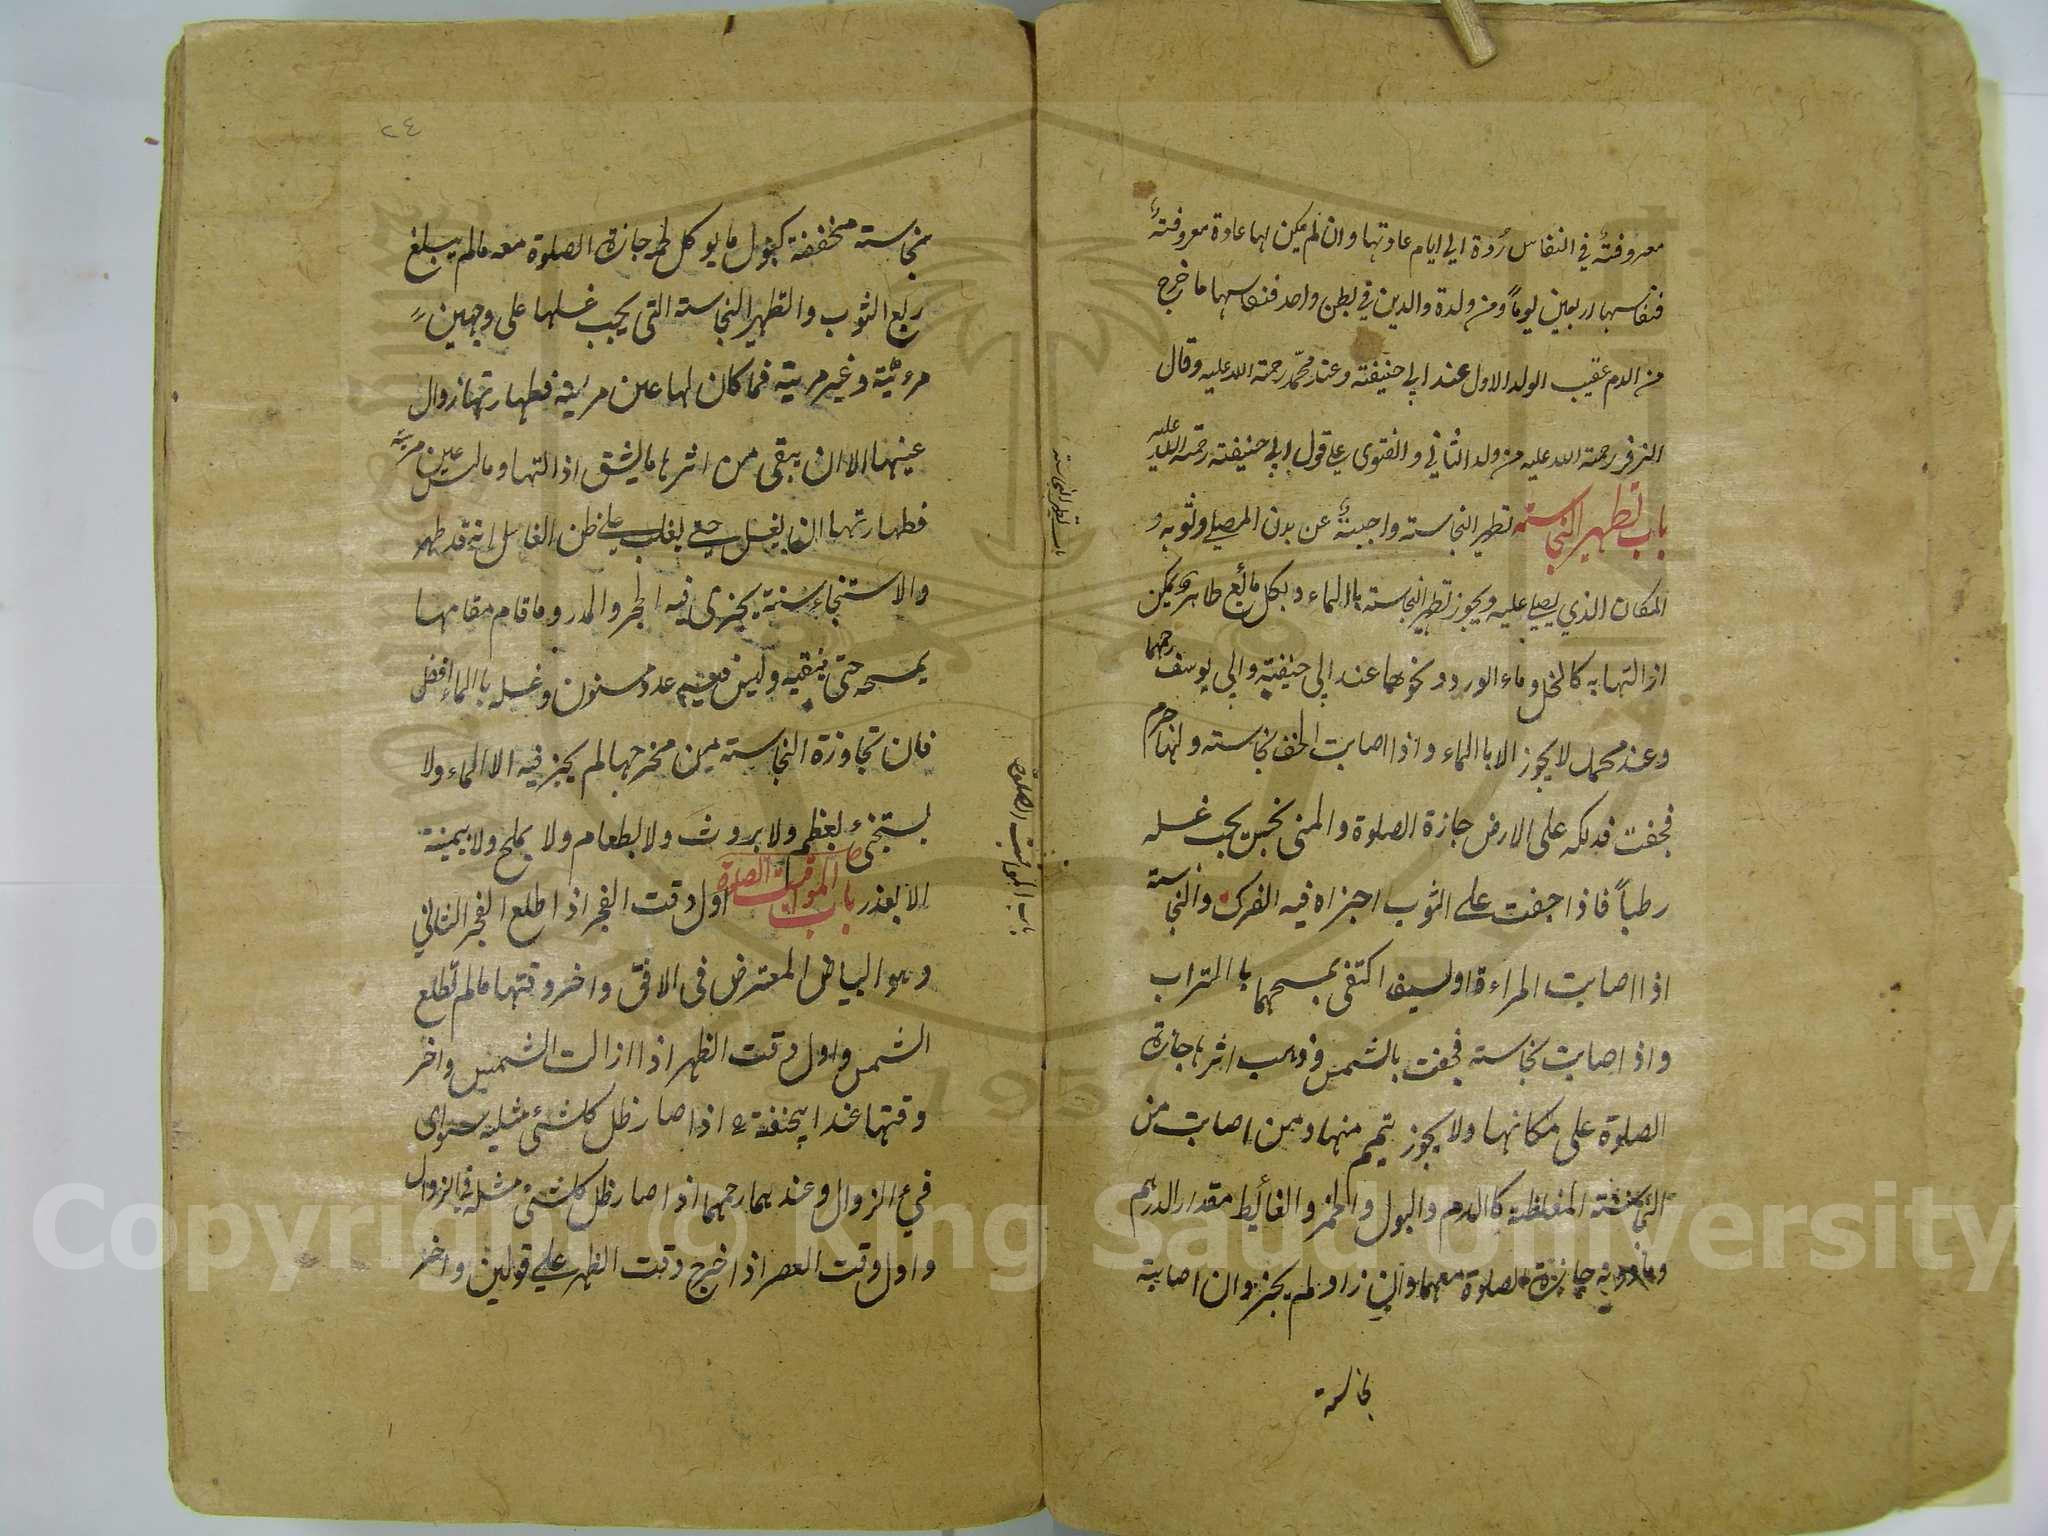 معروفتهٌ في النفاس رُدة الي ايام عادتها وان لم يكن لها عادة معروفتهٌ
فنفاسها اربعين يوماً ومن ولدة والدين في بطن واحد فنفاسها ما خرج
من الدم عقيب الولد الاول عند ابي حنيفته وعند محمّد رحمته الله عليه وقال
الزفر رحمته الله عليه من ولد الثاني والفتوى على قول ابي حنيفته رحمته الله عليه
باب تطهير النجاسته تطهير النجاسته واجبتهٌ عن بدن المصلي وثوبه و
المكان الذي يصلي عليه ويجوز تطهير النجاسته باالماء وبكل مائع طاهر ويمكن
ازالتها به كالخل وماء الورد ونحوهما عند ابي حنيفته وابي يوسف رحمهما
وعند محمد لا يجوز الا باالماء واذا اصابت الخف نجاسته ولها جرم
فجفت فدلكه على الارض جازة الصلوة والمنى نجس يجب غسله
رطباً فاذا جفت على الثوب اجزاه فيه الفرك والنجاسته
اذا اصابت المراءة اوالسيف اكتفى بمسحهما باالتراب
واذا اصابت نجاسته فجفت بالشمس وذهب اثرها جازة
الصلوة على مكانها ولا يجوز تيمم منها ومن اصابت من
النجاسته المغلظته كاالدم والبول والخمر والغائيط مقدار الدرهم
وما دونه جازة الصلوة معهما وان زاد لم يجز وان اصابته
نجاسته
باب تطهير النجاسته
٢٤
نجاسته مخففته كبول ما يوكل لحمه جازة الصلوة معه مالم يبلغ
ربع الثوب والتطهير النجاسته التى يجب غسلها على وجهين
مرءيّته وغير مريته فما كان لها عين مريته فطهارتها زوال
عينها الا ان يبقى من اثرها مايشق اذالتها وماليس عين مريته
فطهارتها ان يغسل حتى يغلب على ظن الغاسل انه قد طهر
والاستنجاء سنته يجزى فيه الحجر والمدر وما قام مقامها
يمسحه حتى ينقيه وليس فيه عدد مسنون وغسله باالماء افضل
فان تجاوزة النجاسته من مخرجها لم يجز فيه الا الماء ولا
يستنجىء بعظم ولا بروث ولا بطعام ولا بملح ولا بيمينه
الا بعذر باب المواقيت الصلوة اول وقت الفجر اذا طلع الفجر الثاني
وهو البياض المعترض فى الافق واخر وقتها مالم تطلع
الشمس واول وقت الظهر اذا ازالت الشمس واخر
وقتها عند ابيحنفته اذا صار ظل كل شئ مثليه سواى
فيء الزوال وعندهما رحمهما اذا صار ظل كل شئ مثله فى الزوال
واول وقت العصر اذا خرج وقت الظهر على قولين واخر
باب المواقيت الصلوة
Copyright © King Saud University
1957